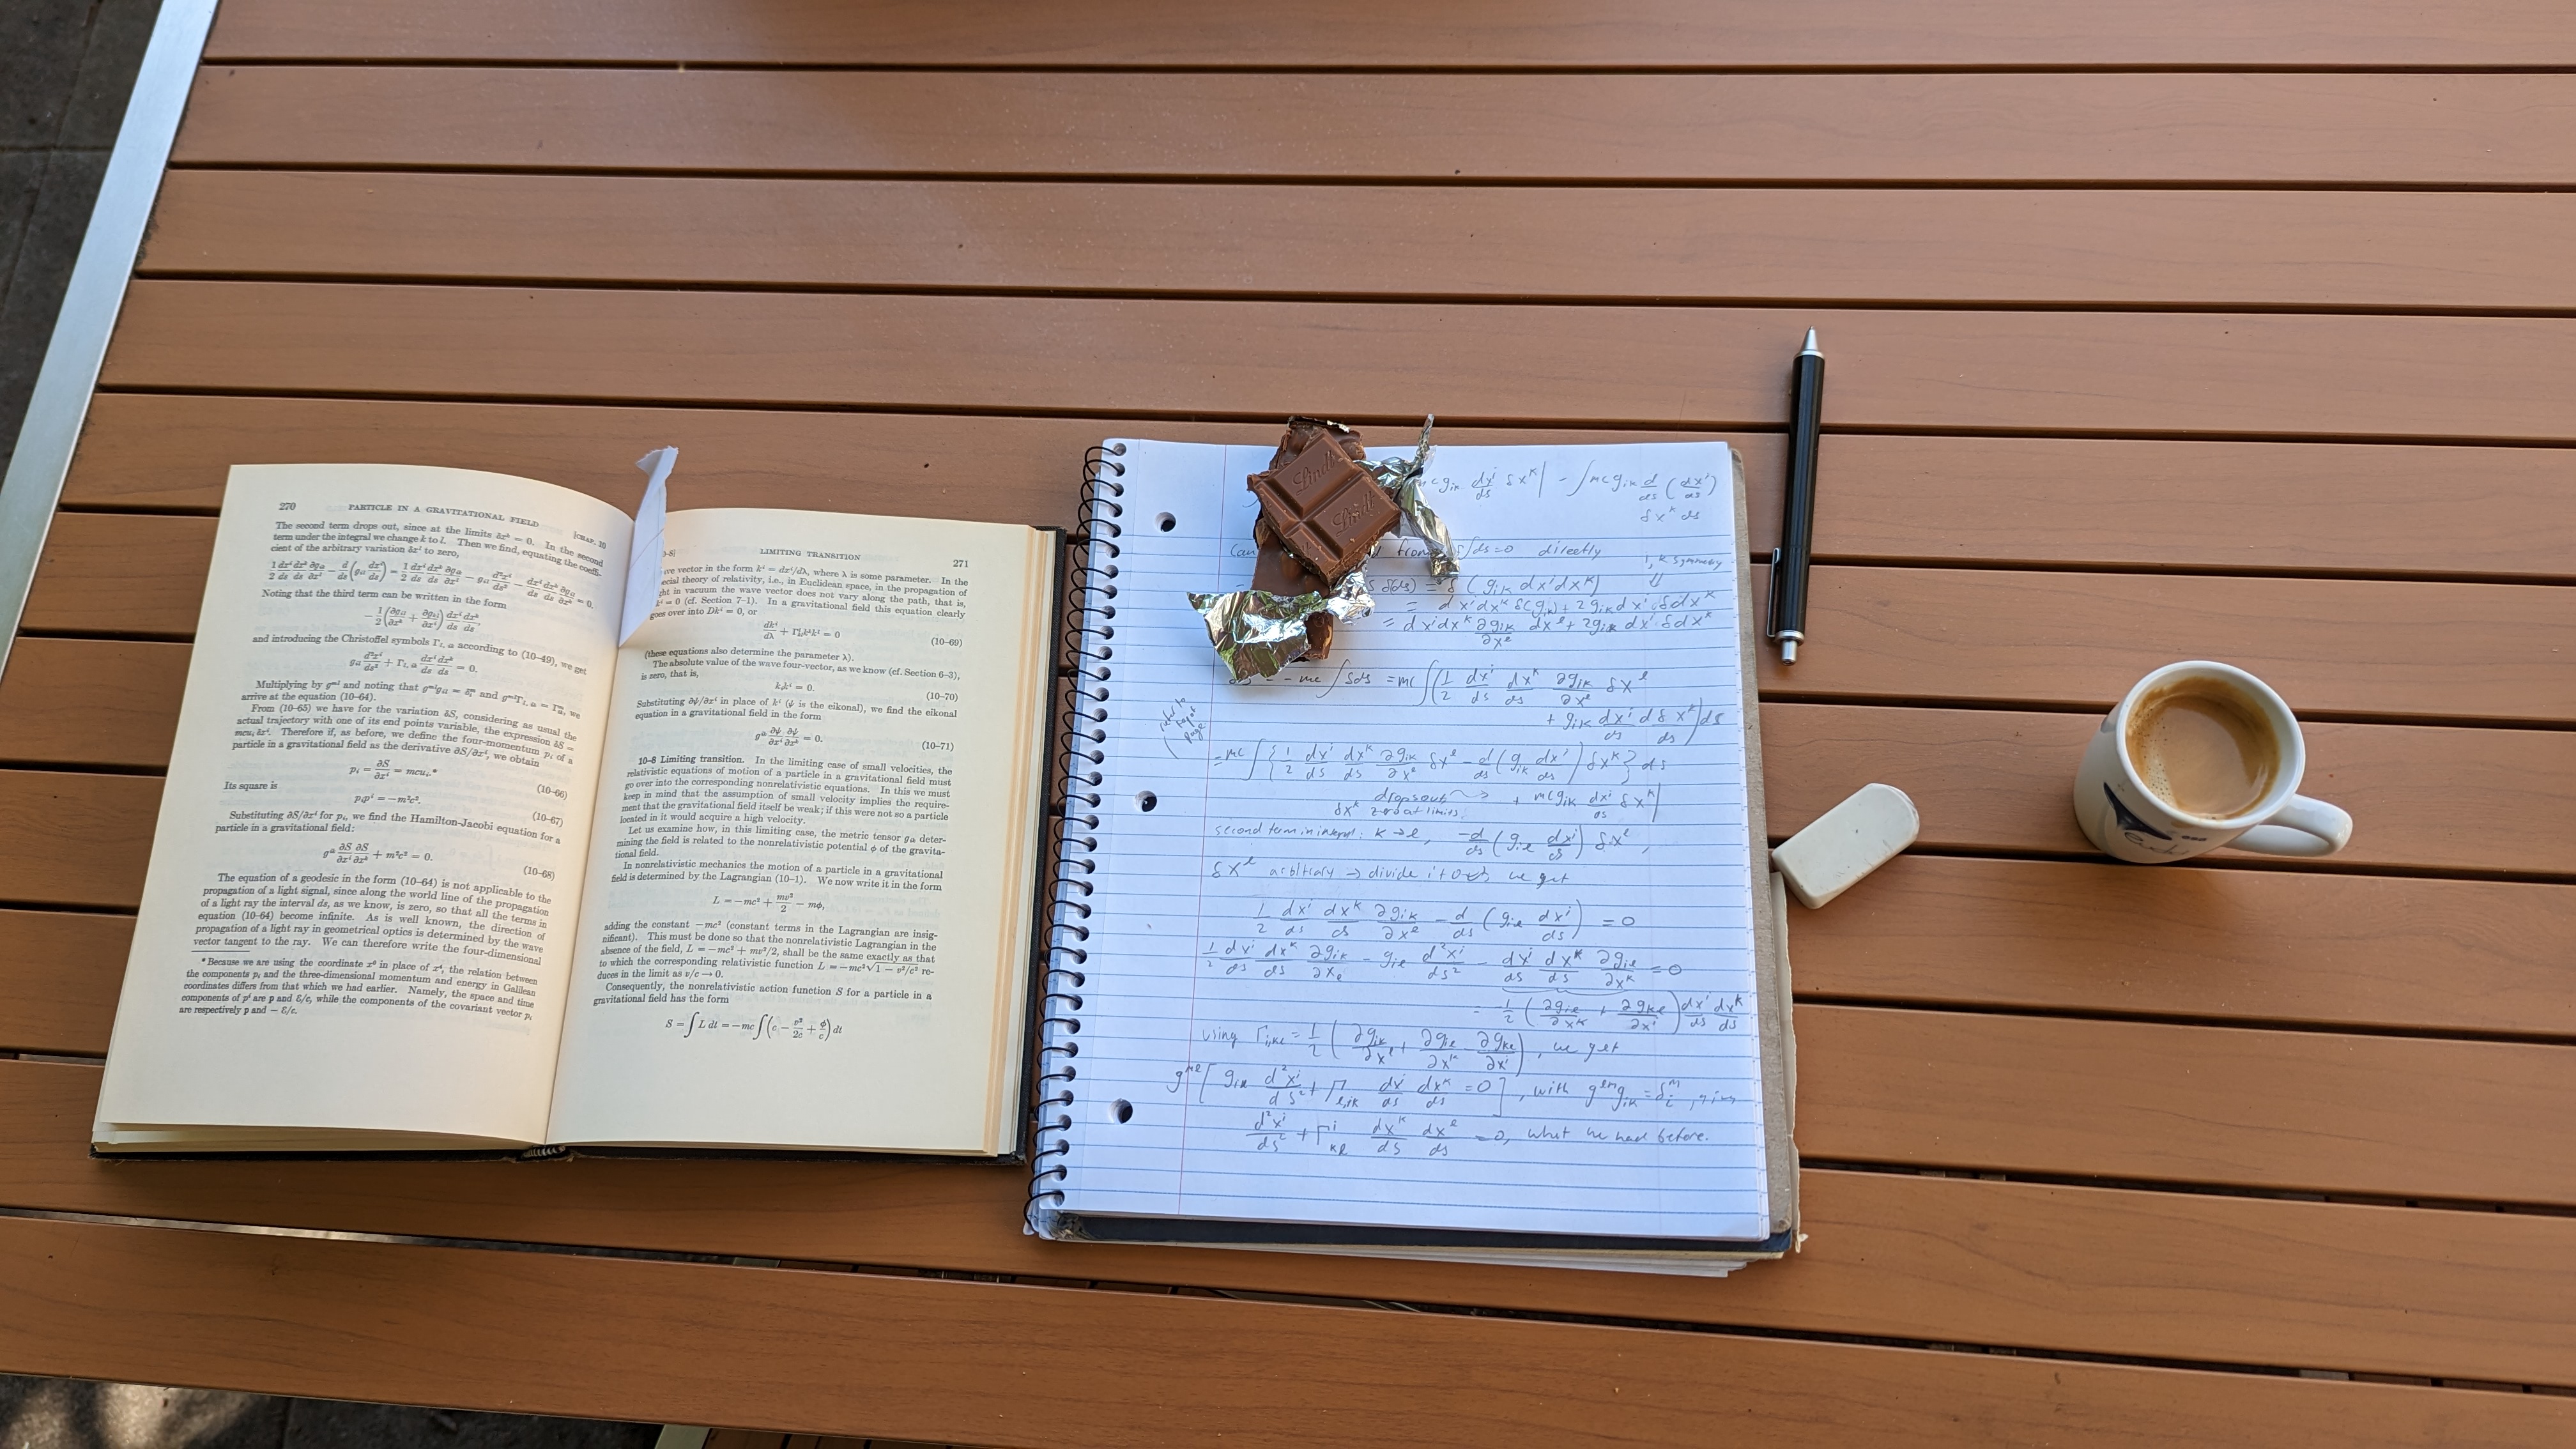 270
PARTICLE IN A GRAVITATIONAL FIELD
[CHAP. 10
The second term drops out, since at the limits δxᵏ = 0. In the second
term under the integral we change k to l. Then we find, equating the coeffi-
cient of the arbitrary variation δxˡ to zero,
1/2 dxⁱ/ds dxᵏ/ds ∂gᵢₖ/∂xˡ − d/ds (gᵢₗ dxⁱ/ds) = 1/2 dxⁱ/ds dxᵏ/ds ∂gᵢₖ/∂xˡ − gᵢₗ d²xⁱ/ds² − dxⁱ/ds dxᵏ/ds ∂gᵢₗ/∂xᵏ = 0.
Noting that the third term can be written in the form
−1/2 (∂gᵢₗ/∂xᵏ + ∂gₖₗ/∂xⁱ) dxⁱ/ds dxᵏ/ds,
and introducing the Christoffel symbols Γₗ,ᵢₖ according to (10–49), we get
gᵢₗ d²xⁱ/ds² + Γₗ,ᵢₖ dxⁱ/ds dxᵏ/ds = 0.
Multiplying by gᵐˡ and noting that gᵐˡgᵢₗ = δᵢᵐ and gᵐˡΓₗ,ᵢₖ = Γᵢₖᵐ, we
arrive at the equation (10–64).
From (10–65) we have for the variation δS, considering as usual the
actual trajectory with one of its end points variable, the expression δS =
mcuᵢ δxⁱ. Therefore if, as before, we define the four-momentum pᵢ of a
particle in a gravitational field as the derivative ∂S/∂xⁱ, we obtain
pᵢ = ∂S/∂xⁱ = mcuᵢ.* (10–66)
Its square is
pᵢpⁱ = −m²c². (10–67)
Substituting ∂S/∂xⁱ for pᵢ, we find the Hamilton-Jacobi equation for a
particle in a gravitational field:
gⁱᵏ ∂S/∂xⁱ ∂S/∂xᵏ + m²c² = 0. (10–68)
The equation of a geodesic in the form (10–64) is not applicable to the
propagation of a light signal, since along the world line of the propagation
of a light ray the interval ds, as we know, is zero, so that all the terms in
equation (10–64) become infinite. As is well known, the direction of
propagation of a light ray in geometrical optics is determined by the wave
vector tangent to the ray. We can therefore write the four-dimensional
* Because we are using the coordinate x⁰ in place of x⁴, the relation between
the components pᵢ and the three-dimensional momentum and energy in Galilean
coordinates differs from that which we had earlier. Namely, the space and time
components of pⁱ are p and ℰ/c, while the components of the covariant vector pᵢ
are respectively p and − ℰ/c.
LIMITING TRANSITION
271
vector in the form kⁱ = dxⁱ/dλ, where λ is some parameter. In the
theory of relativity, i.e., in Euclidean space, in the propagation of
in vacuum the wave vector does not vary along the path, that is,
= 0 (cf. Section 7–1). In a gravitational field this equation clearly
goes over into Dkⁱ = 0, or
dkⁱ/dλ + Γₖₗⁱkᵏkˡ = 0 (10–69)
(these equations also determine the parameter λ).
The absolute value of the wave four-vector, as we know (cf. Section 6–3),
is zero, that is,
kᵢkⁱ = 0. (10–70)
Substituting ∂ψ/∂xⁱ in place of kⁱ (ψ is the eikonal), we find the eikonal
equation in a gravitational field in the form
gⁱᵏ ∂ψ/∂xⁱ ∂ψ/∂xᵏ = 0. (10–71)
10–8 Limiting transition. In the limiting case of small velocities, the
relativistic equations of motion of a particle in a gravitational field must
go over into the corresponding nonrelativistic equations. In this we must
keep in mind that the assumption of small velocity implies the require-
ment that the gravitational field itself be weak; if this were not so a particle
located in it would acquire a high velocity.
Let us examine how, in this limiting case, the metric tensor gᵢₖ deter-
mining the field is related to the nonrelativistic potential φ of the gravita-
tional field.
In nonrelativistic mechanics the motion of a particle in a gravitational
field is determined by the Lagrangian (10–1). We now write it in the form
L = −mc² + mv²/2 − mφ,
adding the constant −mc² (constant terms in the Lagrangian are insig-
nificant). This must be done so that the nonrelativistic Lagrangian in the
absence of the field, L = −mc² + mv²/2, shall be the same exactly as that
to which the corresponding relativistic function L = −mc²√1 − v²/c² re-
duces in the limit as v/c → 0.
Consequently, the nonrelativistic action function S for a particle in a
gravitational field has the form
S = ∫ L dt = −mc ∫ (c − v²/2c + φ/c) dt
Lindt
Lindt
mcgᵢₖ dxⁱ/ds δxᵏ| − ∫mcgᵢₖ d/ds (dxⁱ/ds)
δxᵏ ds
can from δ∫ds=0 directly
i, k symmetry
⇓
δ(ds) = δ(gᵢₖ dxⁱdxᵏ)
= dxⁱdxᵏ δ(gᵢₖ) + 2gᵢₖ dxⁱ δdxᵏ
= dxⁱdxᵏ ∂gᵢₖ/∂xˡ dxˡ + 2gᵢₖ dxⁱ δdxᵏ
= −mc ∫δds = mc∫(1/2 dxⁱ/ds dxᵏ/ds ∂gᵢₖ/∂xˡ δxˡ
+ gᵢₖ dxⁱ/ds dδxᵏ/ds) ds
= mc ∫{1/2 dxⁱ/ds dxᵏ/ds ∂gᵢₖ/∂xˡ δxˡ − d/ds (gᵢₖ dxⁱ/ds) δxᵏ} ds
drops out → + mcgᵢₖ dxⁱ/ds δxᵏ|
δxᵏ zero at limits.
second term in integral: k→l, −d/ds (gᵢₗ dxⁱ/ds) δxˡ,
δxˡ arbitrary → divide it out, we get
1/2 dxⁱ/ds dxᵏ/ds ∂gᵢₖ/∂xˡ − d/ds (gᵢₗ dxⁱ/ds) = 0
1/2 dxⁱ/ds dxᵏ/ds ∂gᵢₖ/∂xₗ − gᵢₗ d²xⁱ/ds² − dxⁱ/ds dxᵏ/ds ∂gᵢₗ/∂xᵏ = 0
= 1/2 (∂gᵢₗ/∂xᵏ + ∂gₖₗ/∂xⁱ) dxⁱ/ds dxᵏ/ds
using Γᵢ,ₖₗ = 1/2 (∂gᵢₖ/∂xˡ + ∂gᵢₗ/∂xᵏ − ∂gₖₗ/∂xⁱ), we get
gᵐˡ[gᵢₗ d²xⁱ/ds² + Γₗ,ᵢₖ dxⁱ/ds dxᵏ/ds = 0], with gˡᵐgᵢₖ = δᵢᵐ,
d²xⁱ/ds² + Γⁱₖₗ dxᵏ/ds dxˡ/ds = 0, what we had before.